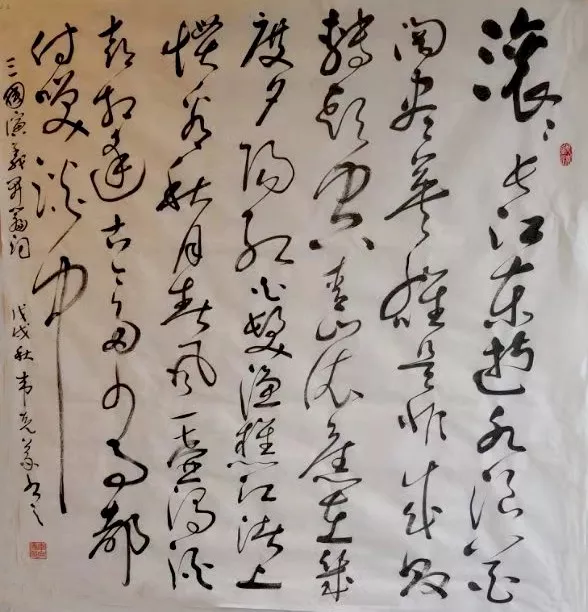 滚滚长江东逝水浪花
淘尽英雄是非成败
转头空青山依旧在几
度夕阳红白髮渔樵江渚上
惯看秋月春风一壶浊酒
喜相逢古今多少事都
付笑谈中
三国演义开篇词
戊戌秋韦克书之